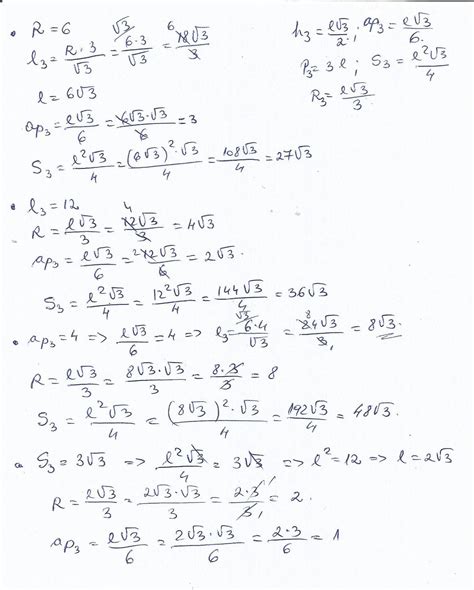 • R=6
l₃ = R·3/√3 = 6·3/√3 = 18√3/3
l = 6√3
ap₃ = l√3/6 = 6√3·√3/6 = 3
S₃ = l²√3/4 = (6√3)²·√3/4 = 108√3/4 = 27√3
h₃ = l√3/2 ; ap₃ = l√3/6.
P₃ = 3l ; S₃ = l²√3/4
R₃ = l√3/3
• l₃ = 12
R = l√3/3 = 12√3/3 = 4√3
ap₃ = l√3/6 = 12√3/6 = 2√3.
S₃ = l²√3/4 = 12²√3/4 = 144√3/4 = 36√3
• ap₃ = 4 => l√3/6 = 4 => l₃ = 6·4/√3 = 24√3/3 = 8√3.
R = l√3/3 = 8√3·√3/3 = 8·3/3 = 8
S₃ = l²√3/4 = (8√3)²·√3/4 = 192√3/4 = 48√3.
• S₃ = 3√3 => l²√3/4 = 3√3 => l² = 12 => l = 2√3
R = l√3/3 = 2√3·√3/3 = 2·3/3 = 2.
ap₃ = l√3/6 = 2√3·√3/6 = 2·3/6 = 1